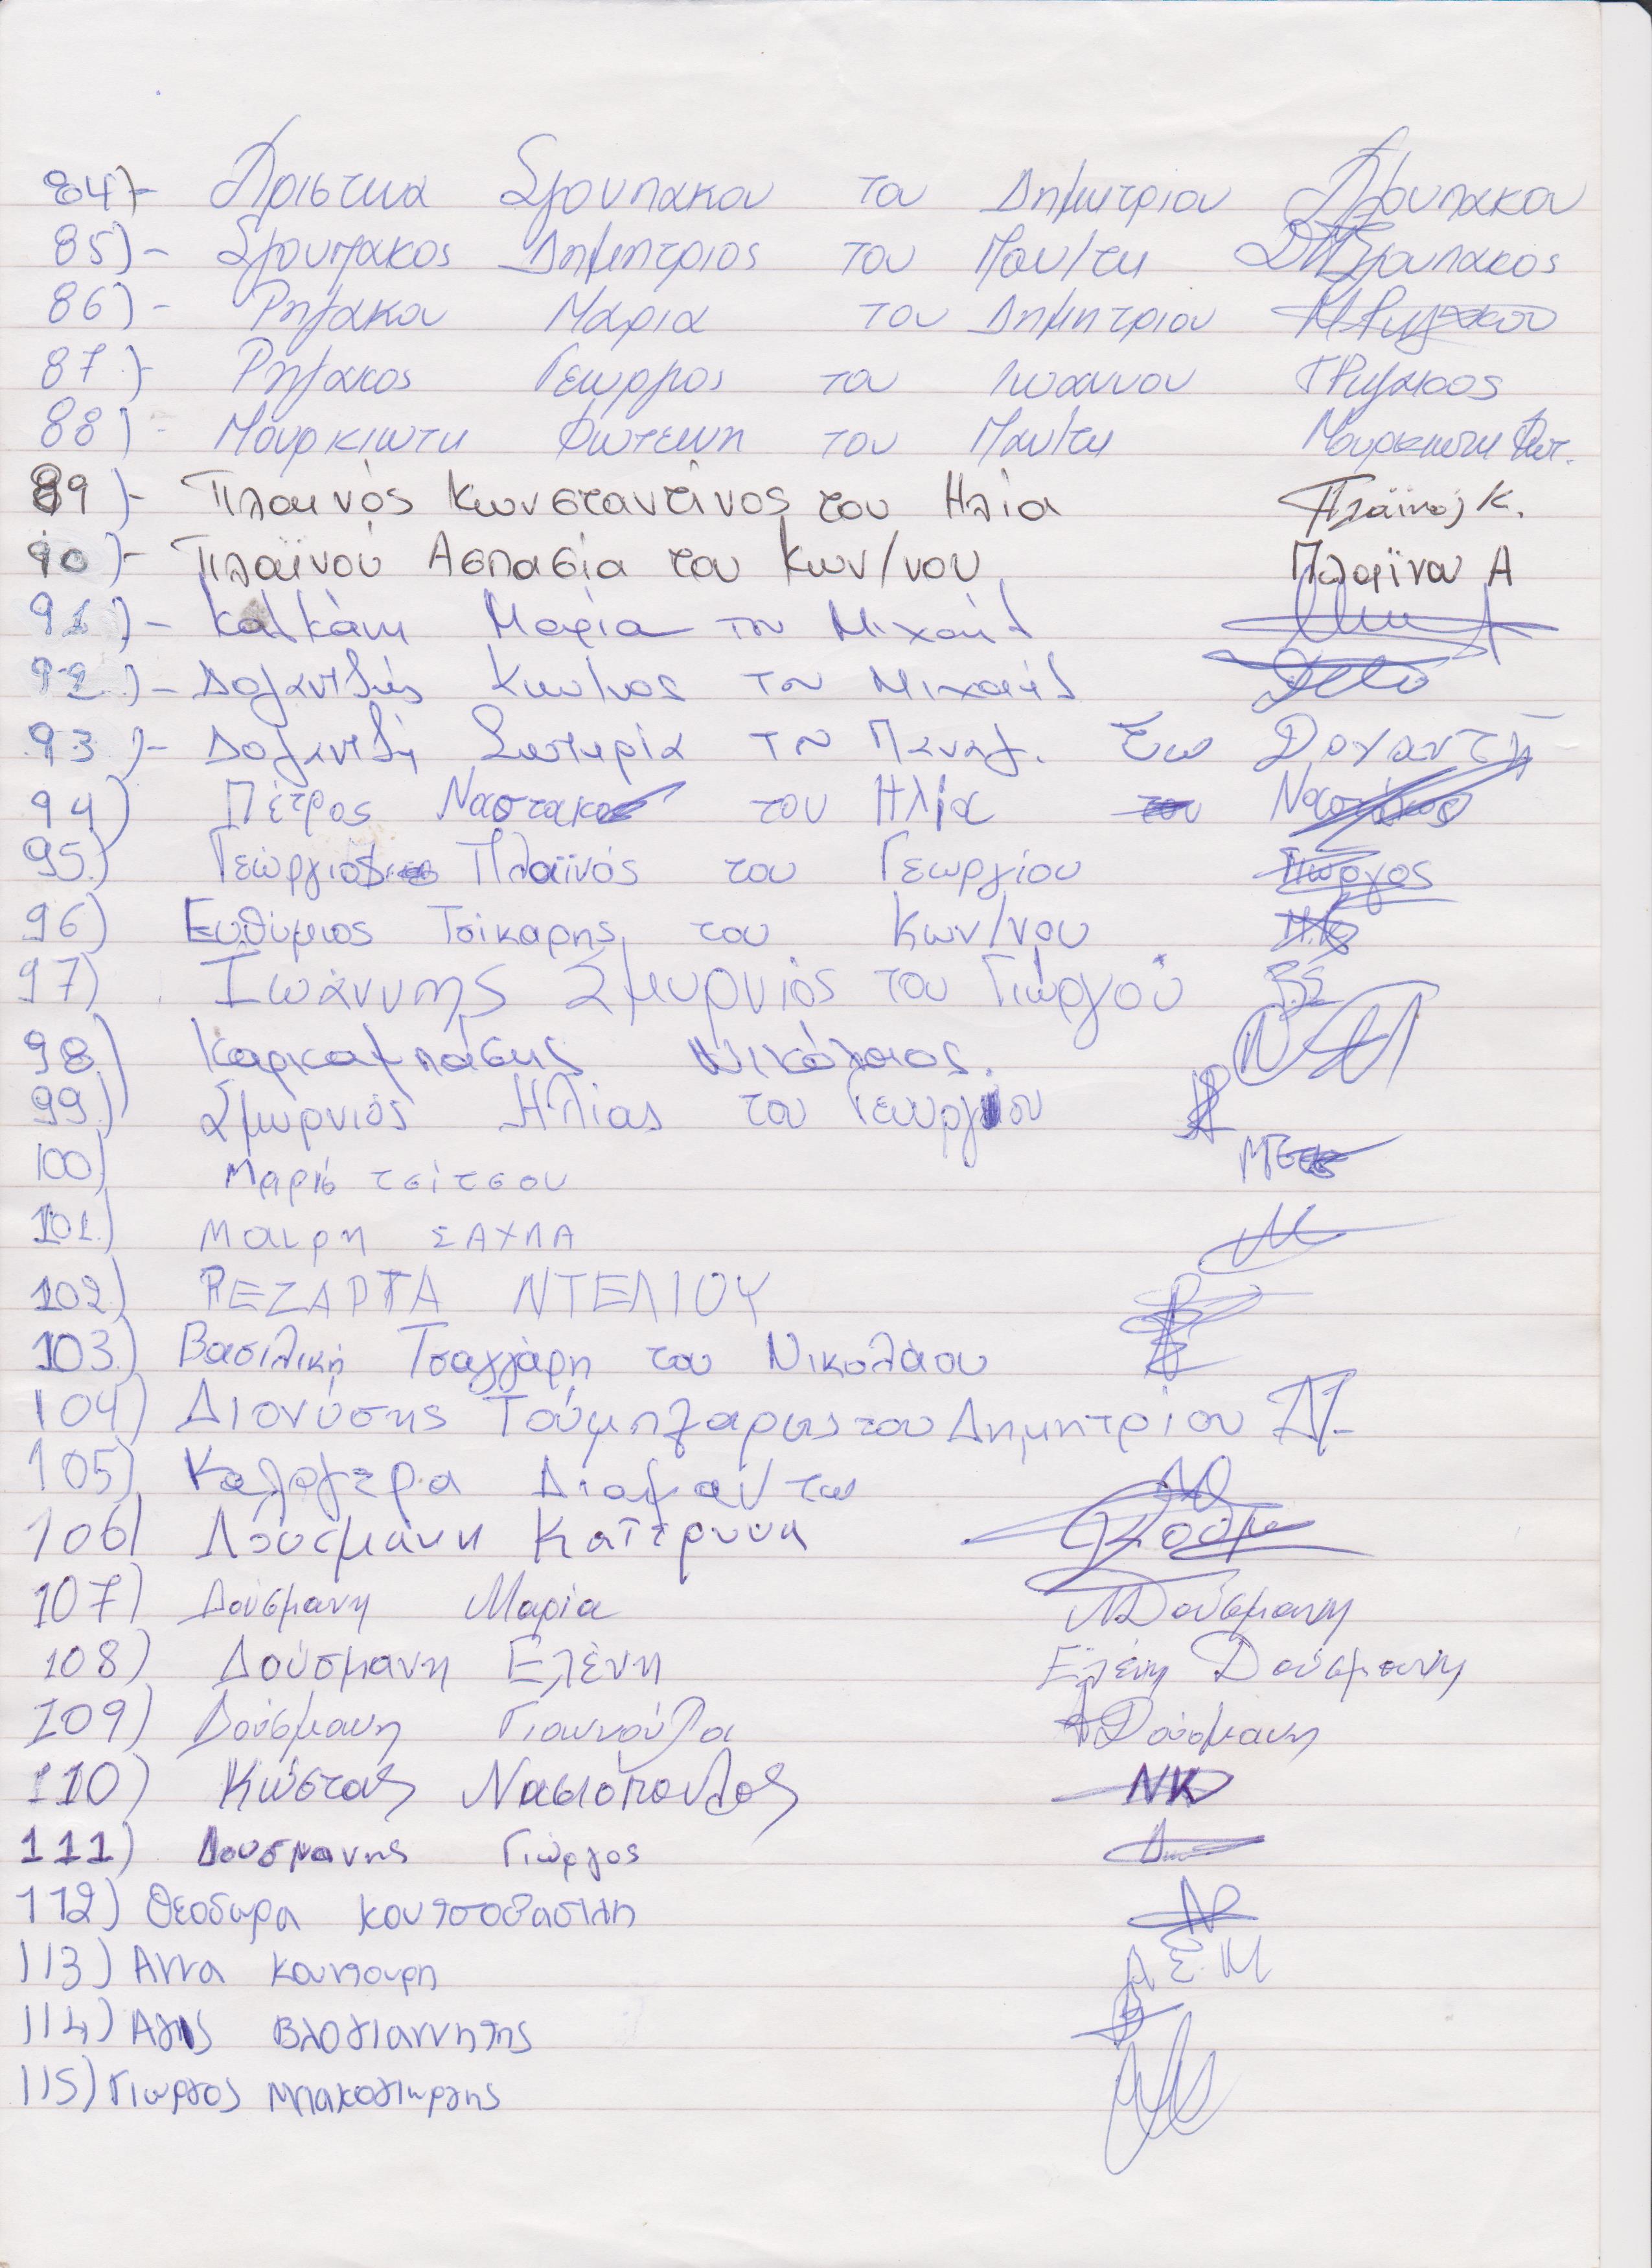 84)- Αριστεα Σγουπακου του Δημητριου Σγουπακου
85)- Σγουπακος Δημητριος του Παν/τη Δ Σγουπακος
86)- Ρηγακου Μαρια του Δημητριου Μ Ρηγακου
87)- Ρηγακος Γεωργιος του Ιωαννου Γ Ρηγακος
88)- Μουρκιωτη Φωτεινη του Παν/τη Μουρκιωτη Φωτ.
89)- Πλαινός Κωνσταντίνος του Ηλία Πλαϊνός Κ.
90)- Πλαϊνού Ασπασία του Κων/νου Πλαϊνου Α
91)- Μαρία του Μιχαήλ
92)- Κων/νος του Μιχαήλ
93)- Σωτηρία του Παναγ.
94) Πέτρος Ναστακος του Ηλία του
95) Γεώργιος Πλαϊνός του Γεωργίου Γιώργος
96) Ευθύμιος Τσίκαρης του Κων/νου
97) Ιωάννης Σμυρνιός του Γιώργου
98) Καρκαμπάσης Νικόλαος.
99) Σμυρνιός Ηλίας του Γεωργίου
100) τσίτσου
101) Μαιρη ΣΑΧΛΑ
102) ΡΕΖΑΡΤΑ ΝΤΕΛΙΟΥ
103) Βασιλική Τσαγγάρη του Νικολάου
104) Διονύσης του Δημητρίου
105) Καλογερα
106) Δούσμανη
107) Δούσμανη Μαρία Μ Δούσμανη
108) Δούσμανη Ελένη Ελένη Δούσμανη
109) Δούσμανη Γιαννούλα Δούσμανη
110) Κώστας Νασιόπουλος ΝΚ
111) Δουσμανης Γιώργος
112) Θεοδωρα κουτσοβασιλη
113) Αννα κουντουρη
114) Βλογιαννητης
115) Γιωργος Μπακογιωργης